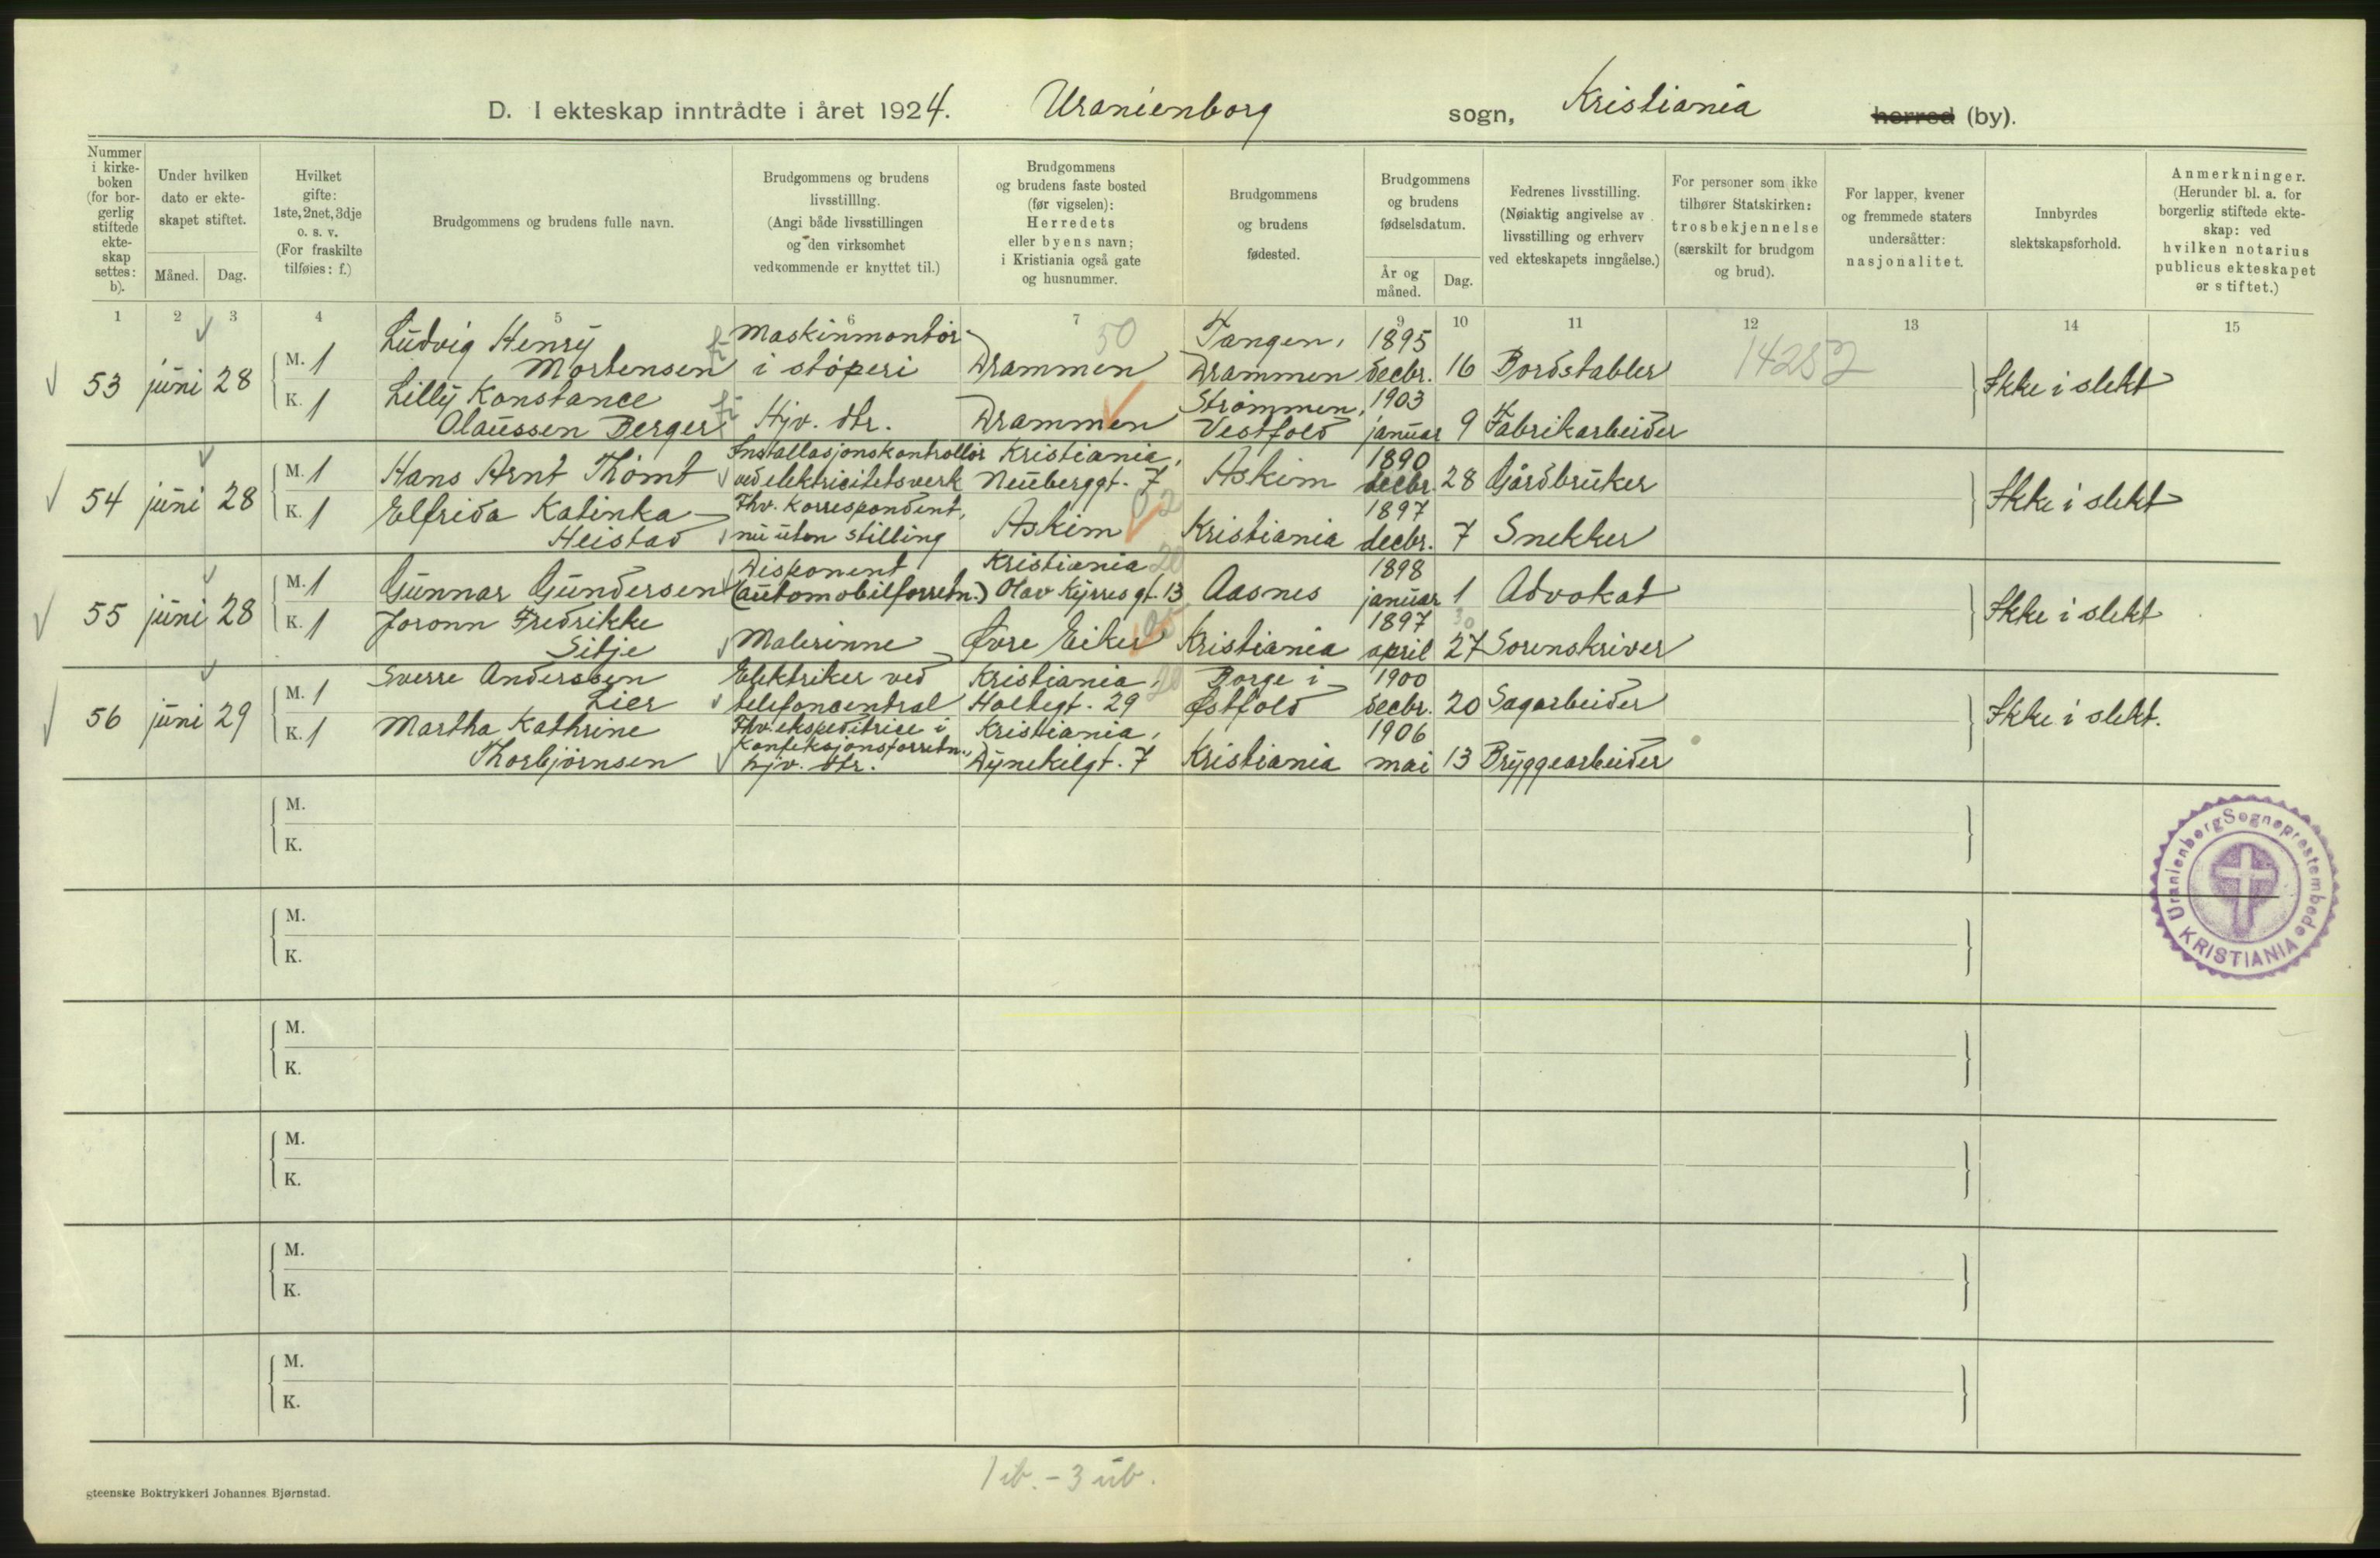 D. I ekteskap inntrådte i året 1924. Uranienborg sogn, Kristiania herred (by).
Nummer i kirke-boken (for bor-gerlig stiftede ekte-skap settes: b).
Under hvilken dato er ekte-skapet stiftet.
Måned. Dag.
Hvilket gifte: 1ste, 2net, 3dje o. s. v. (For fraskilte tilføies: f.)
Brudgommens og brudens fulle navn.
Brudgommens og brudens livsstilllng. (Angi både livsstillingen og den virksomhet vedkommende er knyttet til.)
Brudgommens og brudens faste bosted (før vigselen): Herredets eller byens navn; i Kristiania også gate og husnummer.
Brudgommens og brudens fødested.
Brudgommens og brudens fødselsdatum.
År og måned. Dag.
Fedrenes livsstilling. (Nøiaktig angivelse av livsstilling og erhverv ved ekteskapets inngåelse.)
For personer som ikke tilhører Statskirken: trosbekjennelse (særskilt for brudgom og brud).
For lapper, kvener og fremmede staters undersåtter: nasjonalitet.
Innbyrdes slektskapsforhold.
Anmerkninger. (Herunder bl. a. for borgerlig stiftede ekte-skap: ved hvilken notarius publicus ekteskapet er stiftet.)
1 2 3 4 5 6 7 8 9 10 11 12 13 14 15
53 juni 28
M. 1 Ludvig Henry Mortensen Maskinmontør i støperi Drammen 50 Tangen, Drammen 1895 decbr. 16 Bordstabler 14252
K. 1 Lilly Konstance Olaussen Berger Hjv. dtr. Drammen Strømmen, Vestfold 1903 januar 9 Fabrikarbeider
Ikke i slekt
54 juni 28
M. 1 Hans Arnt Thømt Installasjonskontrollør ved elektricitetsverk Kristiania, Neuberggt. 7 Askim 1890 decbr. 28 Gårdbruker
K. 1 Elfrida Katinka Heistad Fhv. korrespondent, nu uten stilling Askim 02 Kristiania 1897 decbr. 7 Snekker
Ikke i slekt
55 juni 28
M. 1 Gunnar Gundersen Disponent (automobilforretn.) Kristiania 20 Olav Kyrres gt. 13 Aasnes 1898 januar 1 Advokat
K. 1 Joronn Fredrikke Sitje Malerinne Øvre Eiker Kristiania 1897 april 27 30 Sorenskriver
Ikke i slekt
56 juni 29
M. 1 Sverre Andersen Lier Elektriker ved telefoncentral Kristiania, 20 Holtegt. 29 Borge i Østfold 1900 decbr. 20 Sagarbeider
K. 1 Martha Kathrine Thorbjørnsen Fhv. ekspeditrise i Konfeksjonsforretn., hjv. dtr. Kristiania, Dynekilgt. 7 Kristiania 1906 mai 13 Bryggearbeider
Ikke i slekt.
M.
K.
M.
K.
M.
K.
M.
K.
M.
K.
M.
K.
Uranienborg Sogneprestembede
KRISTIANIA
1 ib. - 3 ub.
gteenske Boktrykkeri Johannes Bjørnstad.